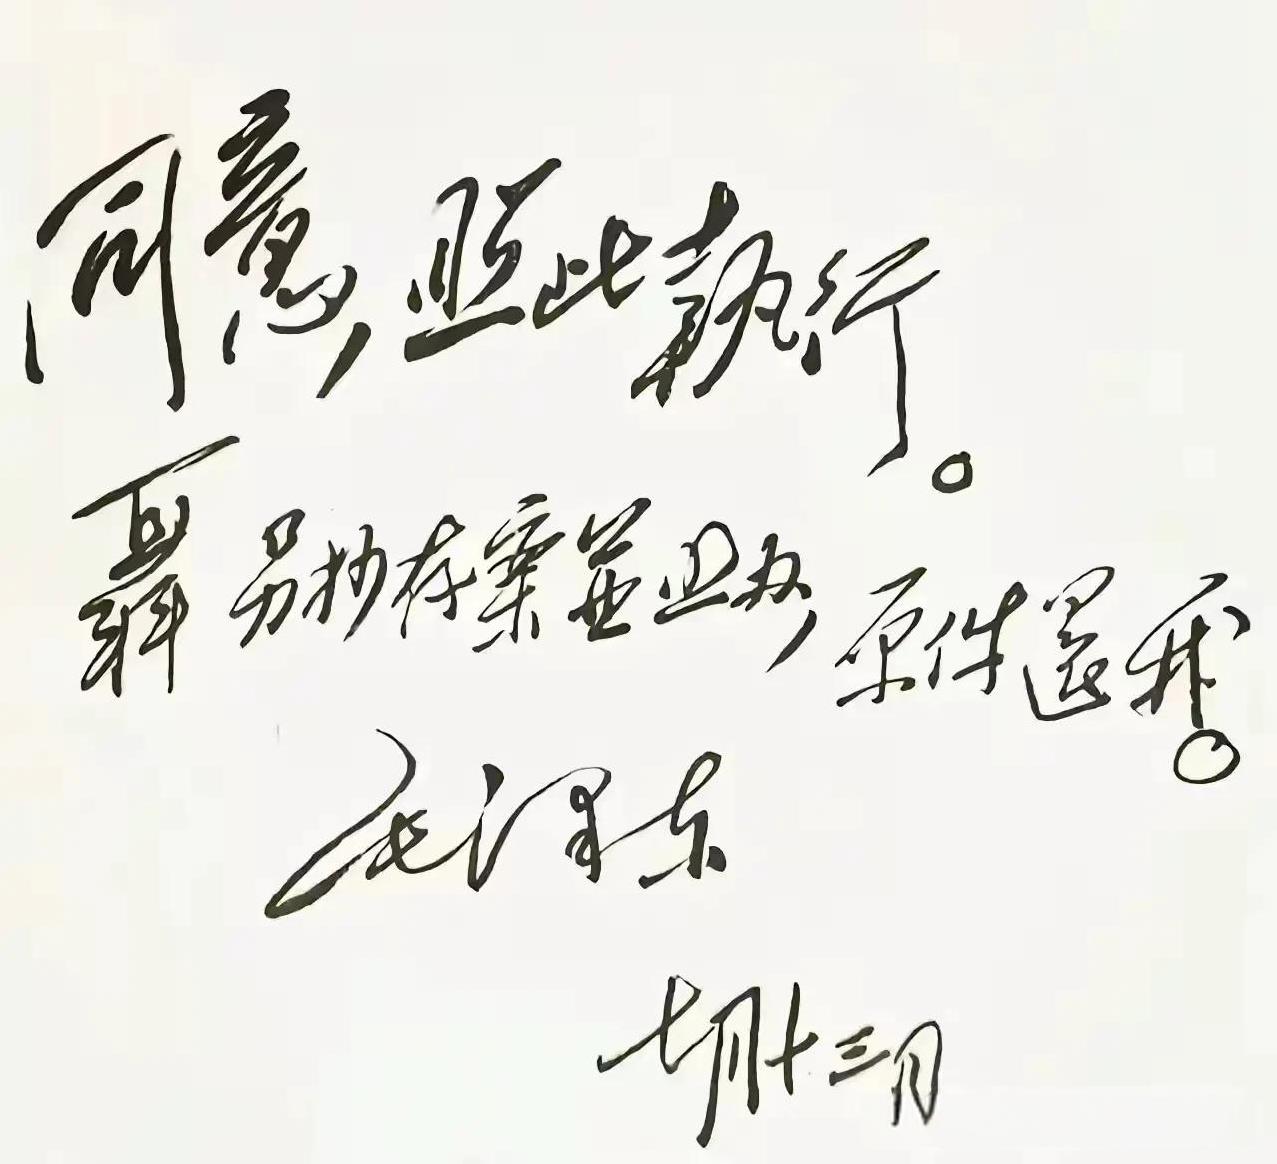 同意，照此執行。
聶另抄存案並照办，原件還我。
毛泽东
七月十三日